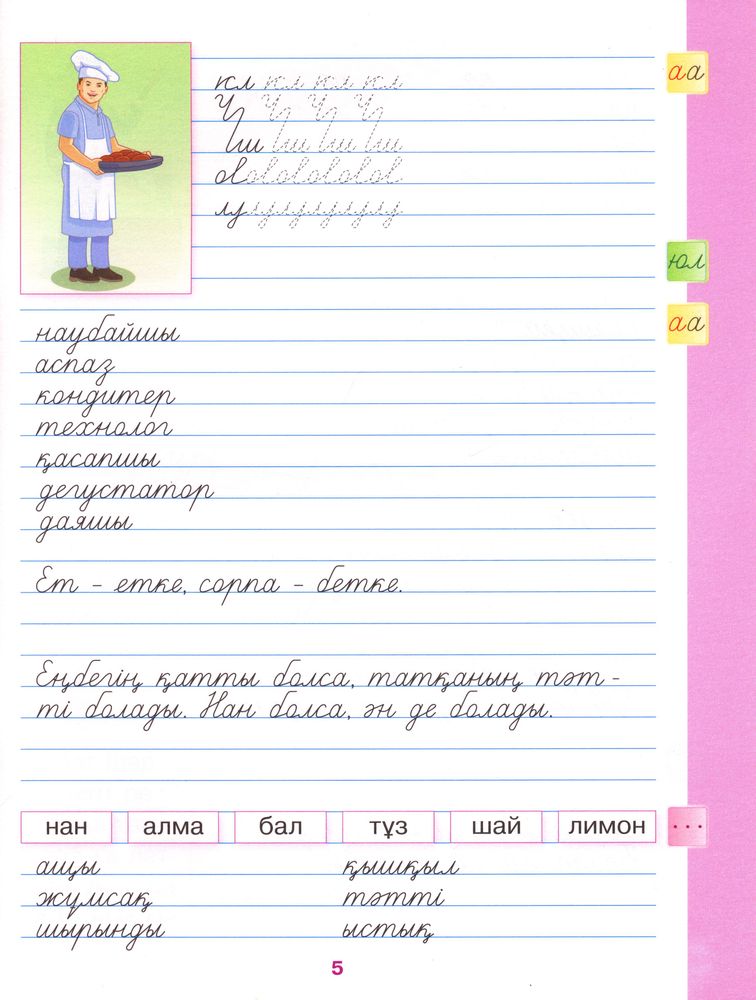 кл кл кл кл
Ч Ч Ч Ч
аа
юл
аа
наубайшы
аспаз
кондитер
технолог
қасапшы
дегустатор
даяшы
Ет - етке, сорпа - бетке.
Еңбегің қатты болса, татқаның тәт -
ті болады. Нан болса, ән де болады.
нан алма бал тұз шай лимон
...
ащы қышқыл
жұмсақ тәтті
шырынды ыстық
5